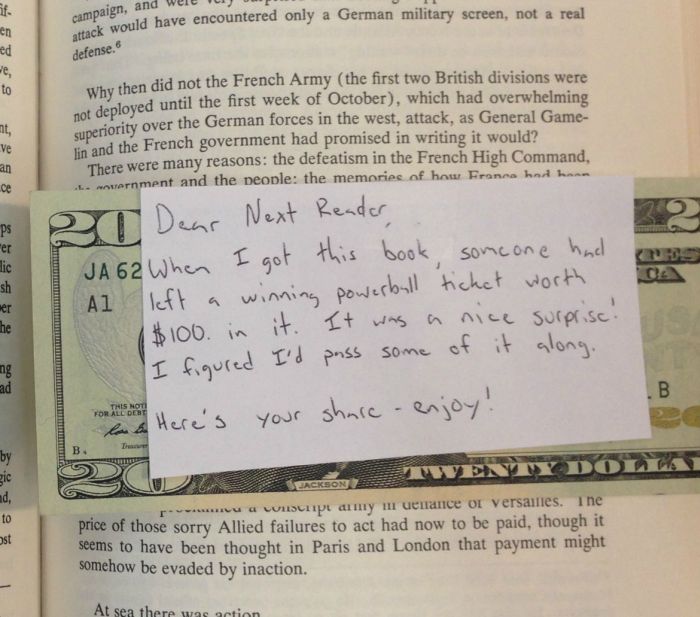 if-
en
ed
ve,
to
nt,
ve
an
ce
ps
er
lic
sh
er
he
ng
ad
by
gic
nd,
to
ost
campaign, and were very
attack would have encountered only a German military screen, not a real
defense.6
Why then did not the French Army (the first two British divisions were
not deployed until the first week of October), which had overwhelming
superiority over the German forces in the west, attack, as General Game-
lin and the French government had promised in writing it would?
There were many reasons: the defeatism in the French High Command,
the government and the people; the memories of how France had been
20
JA 62
A1
THIS NOTE
FOR ALL DEBT
Treasurer
B.
20
JACKSON
TWENTY DOLLAR
2
B
20
Dear Next Reader,
When I got this book, someone had
left a winning powerball ticket worth
$100. in it. It was a nice surprise!
I figured I'd pass some of it along.
Here's your share - enjoy!
a conscript army in defiance of Versailles. The
price of those sorry Allied failures to act had now to be paid, though it
seems to have been thought in Paris and London that payment might
somehow be evaded by inaction.
At sea there was action